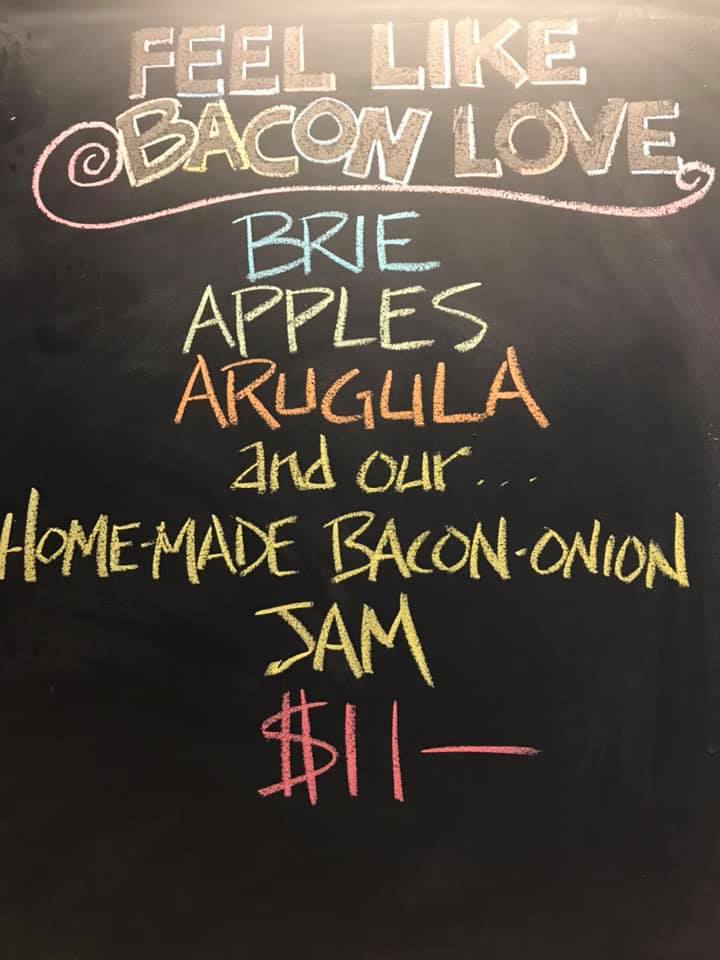 FEEL LIKE
BACON LOVE
BRIE
APPLES
ARUGULA
and our....
HOME-MADE BACON-ONION
JAM
$11—